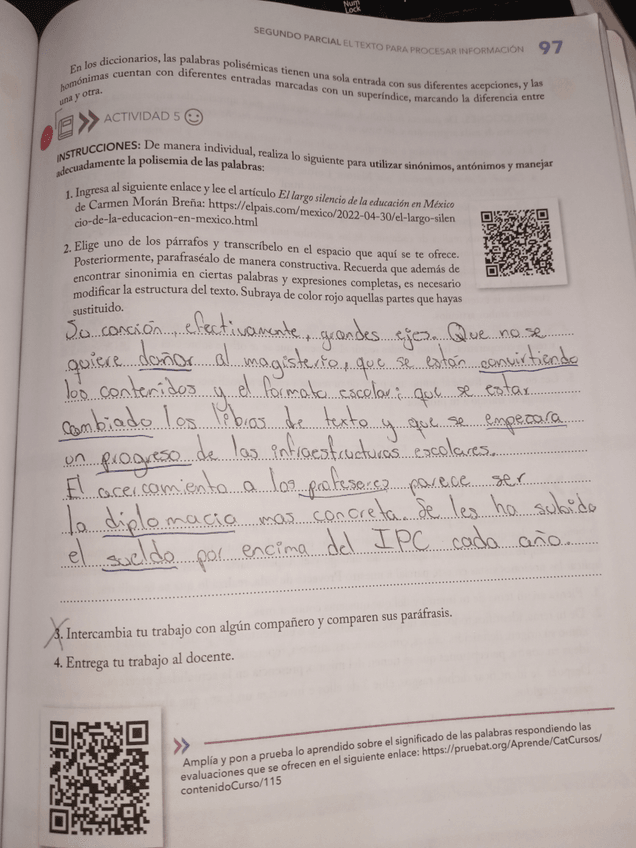 Num
Lock
SEGUNDO PARCIAL EL TEXTO PARA PROCESAR INFORMACIÓN 97
En los diccionarios, las palabras polisémicas tienen una sola entrada con sus diferentes acepciones, y las
homónimas cuentan con diferentes entradas marcadas con un superíndice, marcando la diferencia entre
una y otra.
ACTIVIDAD 5
INSTRUCCIONES: De manera individual, realiza lo siguiente para utilizar sinónimos, antónimos y manejar
adecuadamente la polisemia de las palabras:
1. Ingresa al siguiente enlace y lee el artículo El largo silencio de la educación en México
de Carmen Morán Breña: https://elpais.com/mexico/2022-04-30/el-largo-silen
cio-de-la-educacion-en-mexico.html
2. Elige uno de los párrafos y transcríbelo en el espacio que aquí se te ofrece.
Posteriormente, parafraséalo de manera constructiva. Recuerda que además de
encontrar sinonimia en ciertas palabras y expresiones completas, es necesario
modificar la estructura del texto. Subraya de color rojo aquellas partes que hayas
sustituido.
So canción, efectivamente, grandes ejes. Que no se
quiere dañar al magisterio, que se están convirtiendo
los contenidos y el formato escolar; que se estar
cambiado los lebios de texto y que se empezara
un progreso de las infraestructuras escolares.
El acercamiento a los profeseres parece ser
la diplomacia mas concreta. Se les ha subido
el sueldo por encima del IPC cada año.
3. Intercambia tu trabajo con algún compañero y comparen sus paráfrasis.
4. Entrega tu trabajo al docente.
Amplía y pon a prueba lo aprendido sobre el significado de las palabras respondiendo las
evaluaciones que se ofrecen en el siguiente enlace: https://pruebat.org/Aprende/CatCursos/
contenidoCurso/115